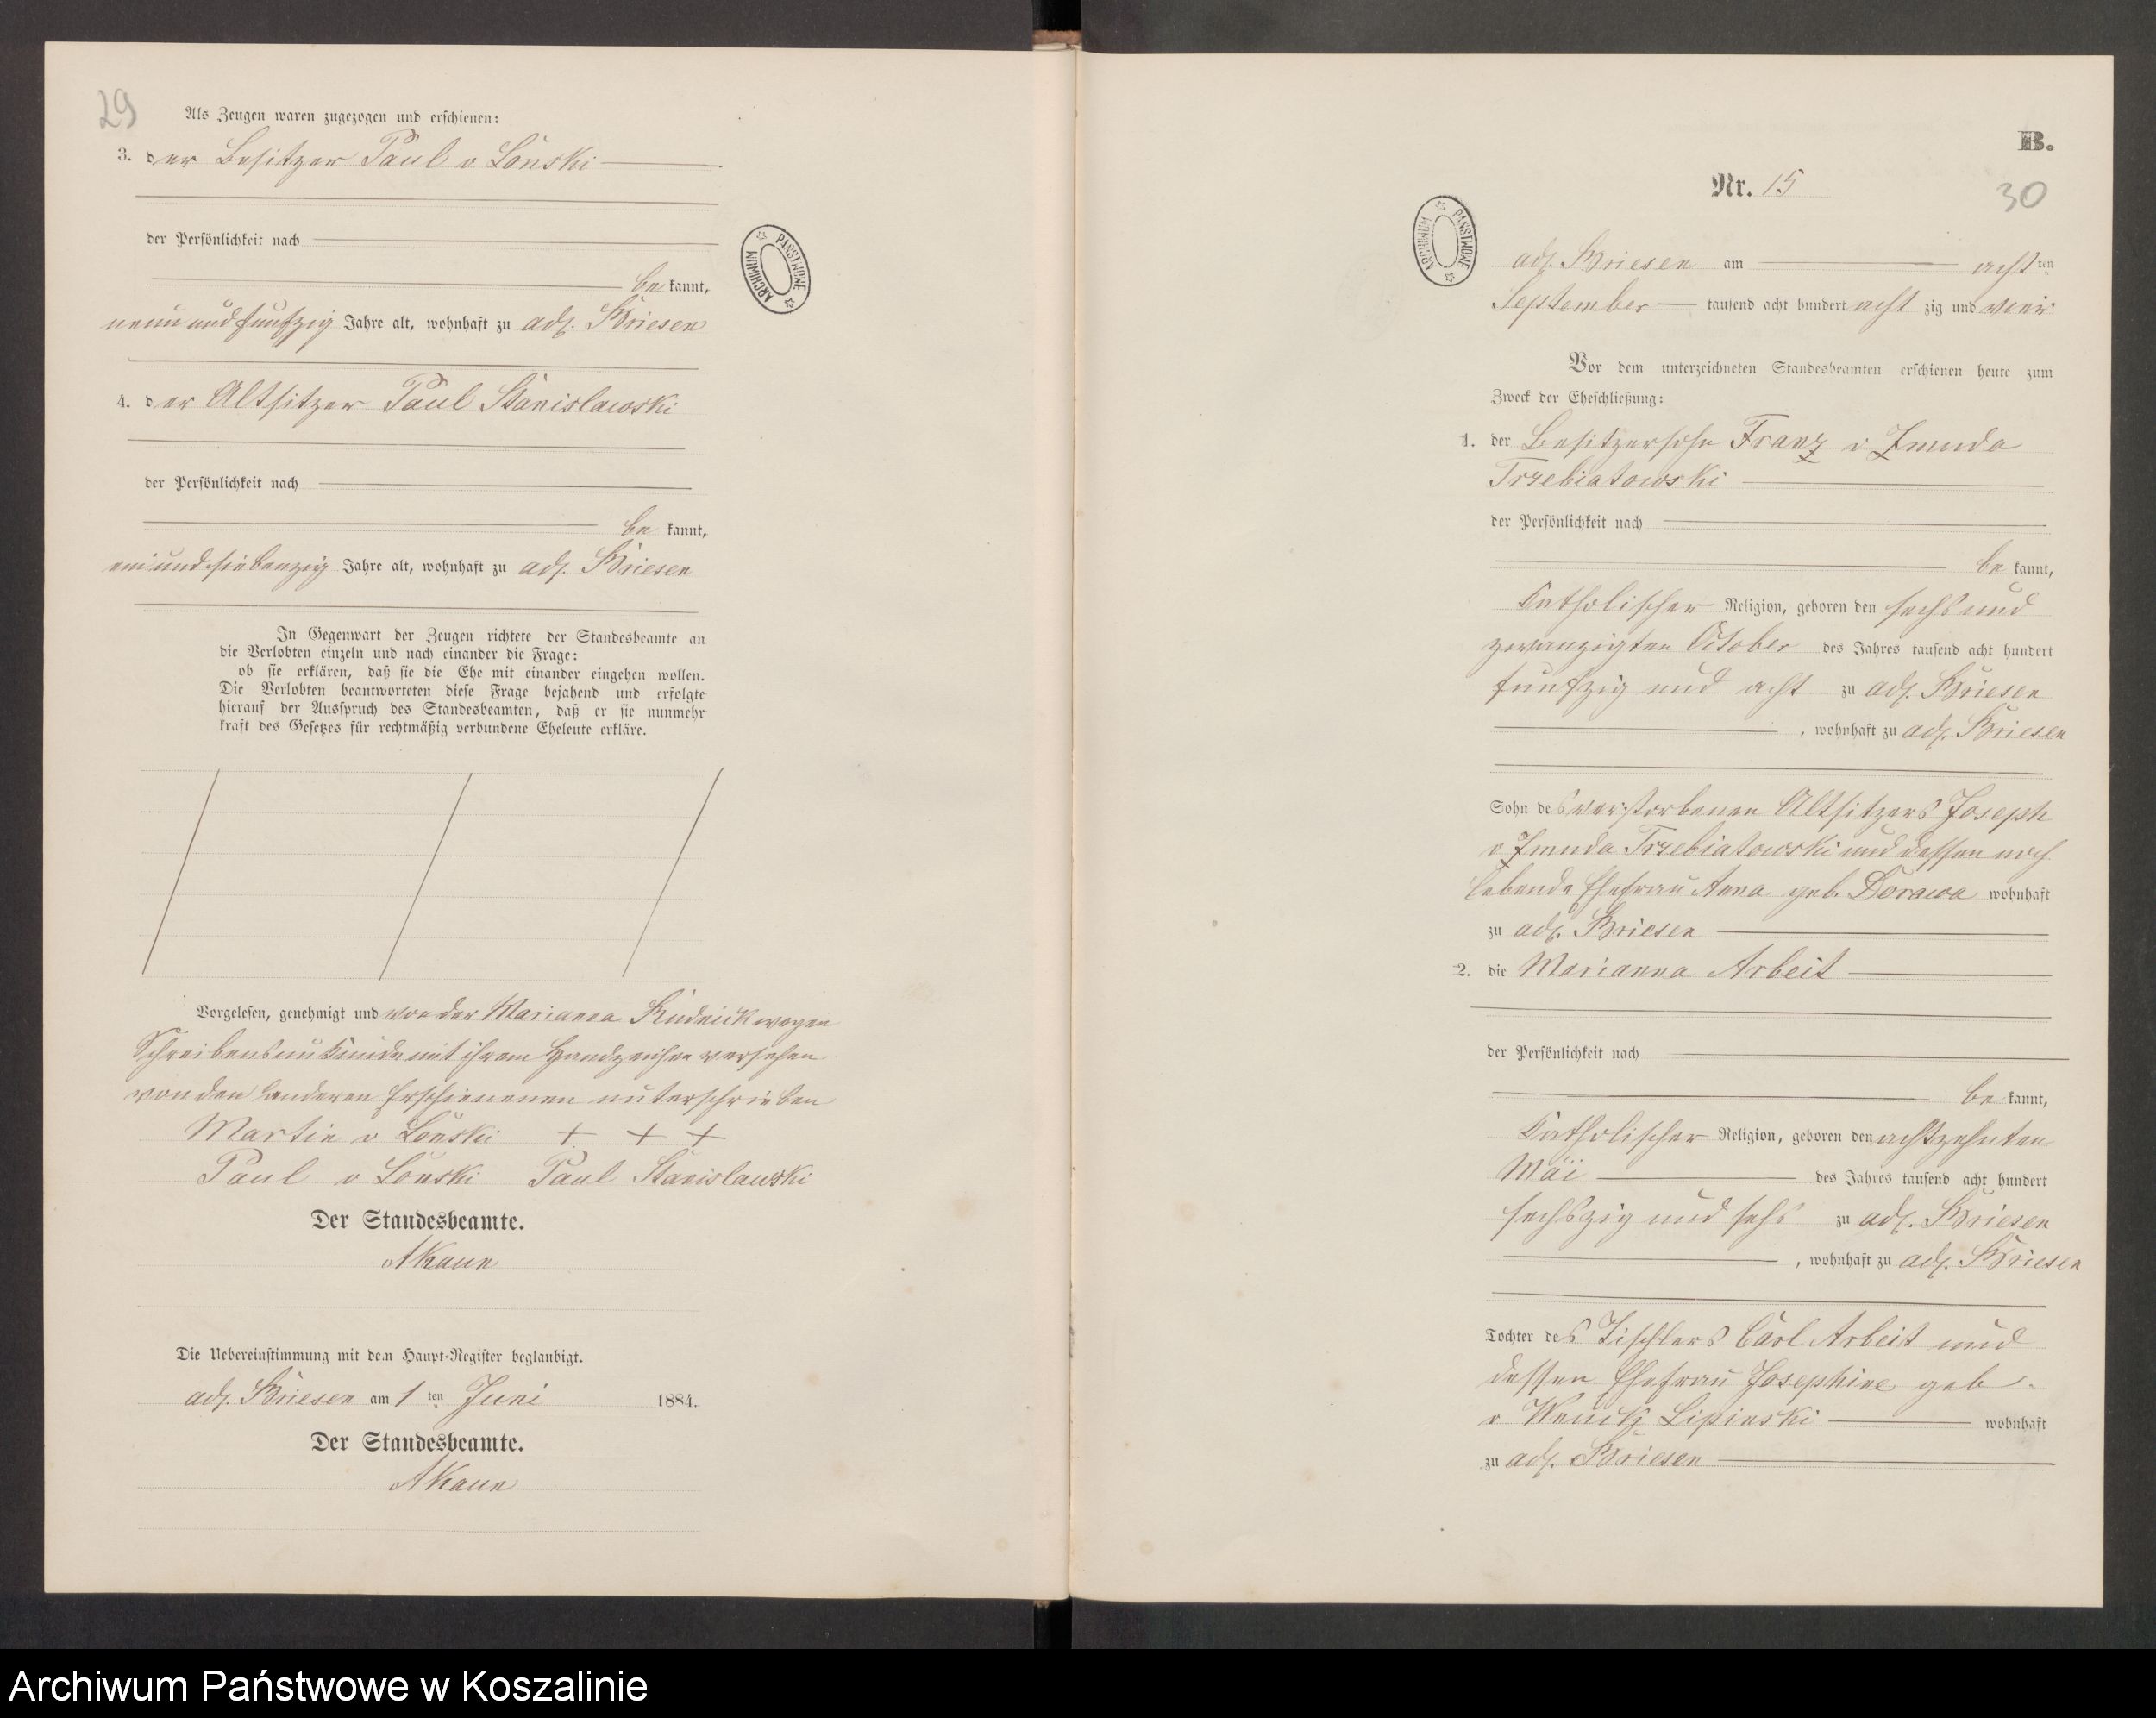 29
Als Zeugen waren zugezogen und erschienen:
3. der Besitzer Paul v Lonski
der Persönlichkeit nach
be kannt,
neunundfunfzig Jahre alt, wohnhaft zu adl. Briesen
4. der Altsitzer Paul Stanislawski
der Persönlichkeit nach
be kannt,
einundsiebenzig Jahre alt, wohnhaft zu adl. Briesen
In Gegenwart der Zeugen richtete der Standesbeamte an
die Verlobten einzeln und nach einander die Frage:
ob sie erklären, daß sie die Ehe mit einander eingehen wollen.
Die Verlobten beantworteten diese Frage bejahend und erfolgte
hierauf der Ausspruch des Standesbeamten, daß er sie nunmehr
kraft des Gesetzes für rechtmäßig verbundene Eheleute erkläre.
Vorgelesen, genehmigt und von der Marianna Rudnick wegen
Schreibensunkunde mit ihrem Handzeichen versehen
von den anderen Erschienenen unterschrieben
Martin v Lonski + + +
Paul v Lonski Paul Stanislawski
Der Standesbeamte.
AKaun
Die Uebereinstimmung mit dem Haupt-Register beglaubigt.
adl. Briesen am 1 ten Juni 1884.
Der Standesbeamte.
AKaun
ARCHIWUM PAŃSTWOWE
B.
Nr. 15
30
ARCHIWUM PAŃSTWOWE
adl. Briesen am acht ten
September tausend acht hundert acht zig und vier
Vor dem unterzeichneten Standesbeamten erschienen heute zum
Zweck der Eheschließung:
1. der Besitzersohn Franz v Zmuda
Trzebiatowski
der Persönlichkeit nach
be kannt,
Katholischer Religion, geboren den sechs und
zwanzigten October des Jahres tausend acht hundert
funfzig und acht zu adl. Briesen
, wohnhaft zu adl. Briesen
Sohn des verstorbenen Altsitzers Joseph
v Zmuda Trzebiatowski und dessen noch
lebende Ehefrau Anna geb. Dorawa wohnhaft
zu adl. Briesen
2. die Marianna Arbeit
der Persönlichkeit nach
be kannt,
Katholischer Religion, geboren den achtzehnten
Mai des Jahres tausend acht hundert
sechszig und sehs zu adl. Briesen
, wohnhaft zu adl. Briesen
Tochter des Tischlers Carl Arbeit und
dessen Ehefrau Josephine geb.
v Lipinski wohnhaft
zu adl. Briesen
Archiwum Państwowe w Koszalinie